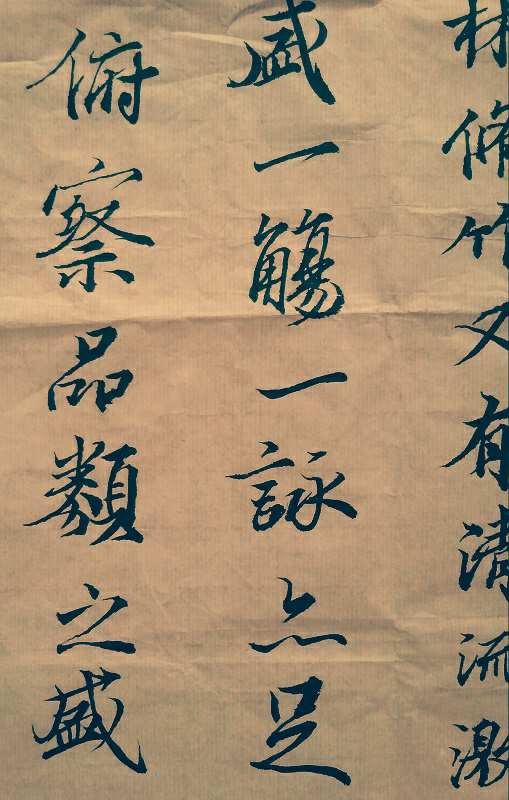 林脩竹又有清流激
盛一觴一詠亦足
俯察品類之盛